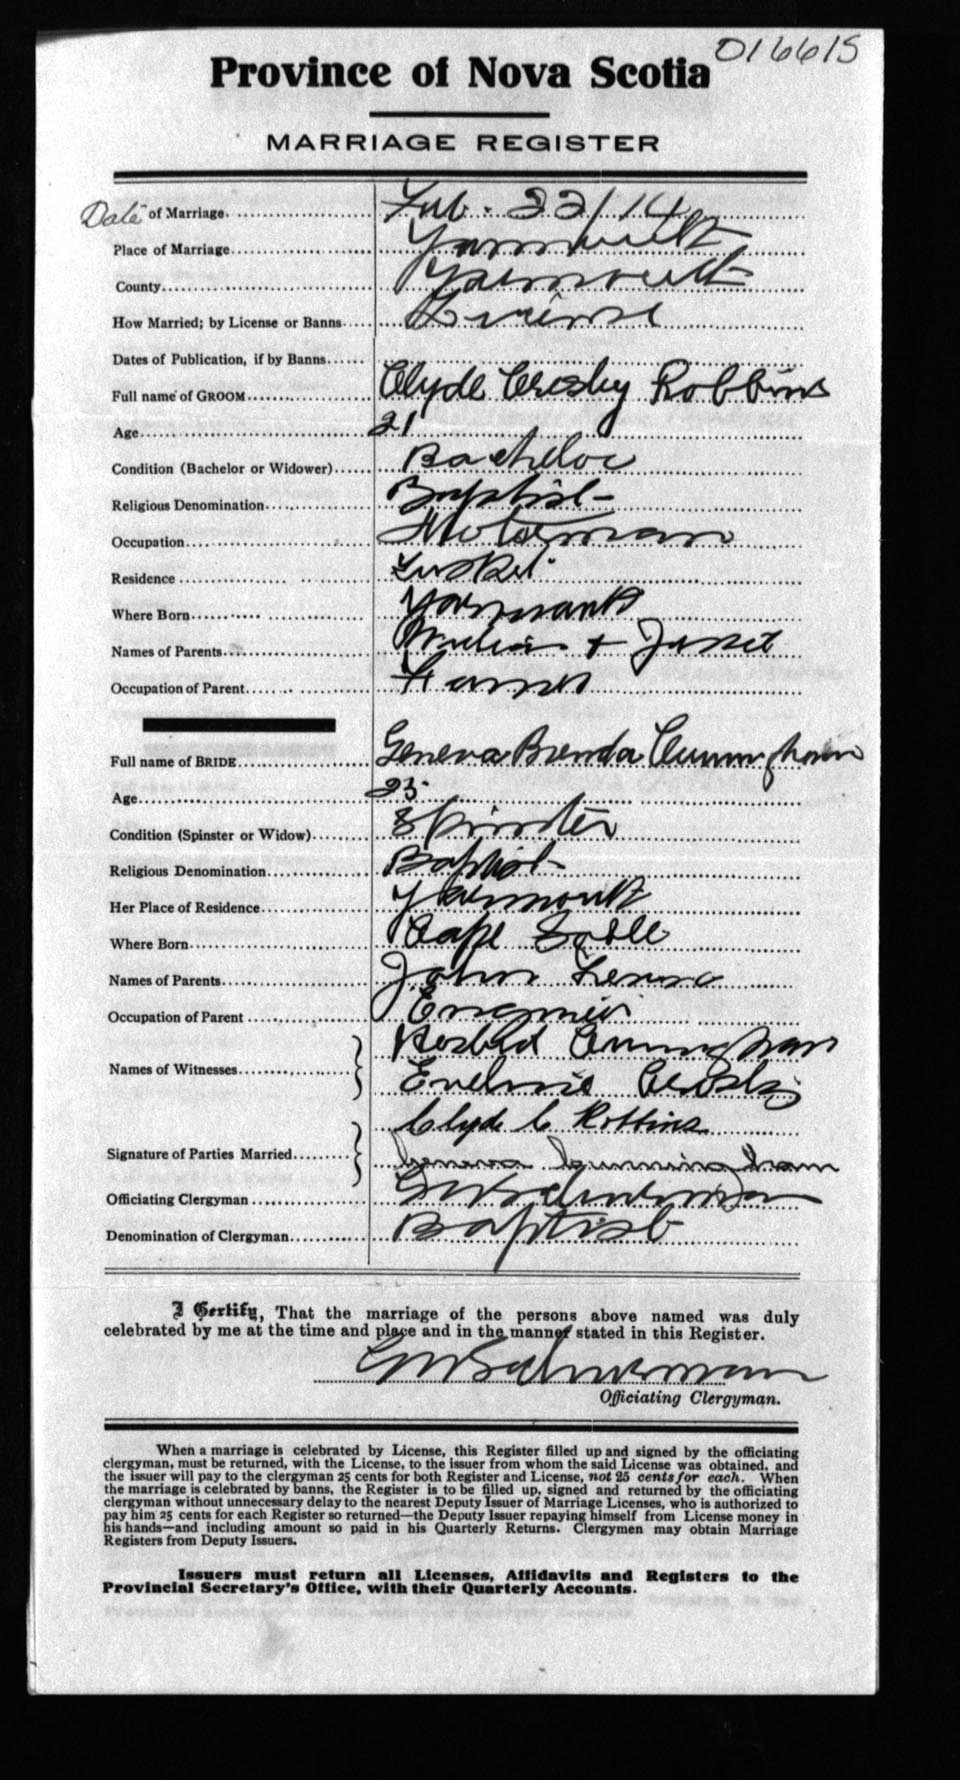 016615
Province of Nova Scotia
MARRIAGE REGISTER
Date of Marriage Feb. 22/14
Place of Marriage Yarmouth
County Yarmouth
How Married; by License or Banns License
Dates of Publication, if by Banns
Full name of GROOM Clyde Crosby Robbins
Age 21
Condition (Bachelor or Widower) Bachelor
Religious Denomination Baptist
Occupation Motorman
Residence Tusket
Where Born Yarmouth
Names of Parents William + Janet
Occupation of Parent Farmer
Full name of BRIDE Geneva Brenda Cunningham
Age 23
Condition (Spinster or Widow) Spinster
Religious Denomination Baptist
Her Place of Residence Yarmouth
Where Born Cape Sable
Names of Parents John
Occupation of Parent Engineer
Names of Witnesses Cunningham
Crosby
Clyde C Robbins
Signature of Parties Married Geneva Cunningham
Officiating Clergyman G W Schurman
Denomination of Clergyman Baptist
I Certify, That the marriage of the persons above named was duly
celebrated by me at the time and place and in the manner stated in this Register.
G W Schurman
Officiating Clergyman.
When a marriage is celebrated by License, this Register filled up and signed by the officiating
clergyman, must be returned, with the License, to the issuer from whom the said License was obtained, and
the issuer will pay to the clergyman 25 cents for both Register and License, not 25 cents for each. When
the marriage is celebrated by banns, the Register is to be filled up, signed and returned by the officiating
clergyman without unnecessary delay to the nearest Deputy Issuer of Marriage Licenses, who is authorized to
pay him 25 cents for each Register so returned—the Deputy Issuer repaying himself from License money in
his hands—and including amount so paid in his Quarterly Returns. Clergymen may obtain Marriage
Registers from Deputy Issuers.
Issuers must return all Licenses, Affidavits and Registers to the
Provincial Secretary's Office, with their Quarterly Accounts.